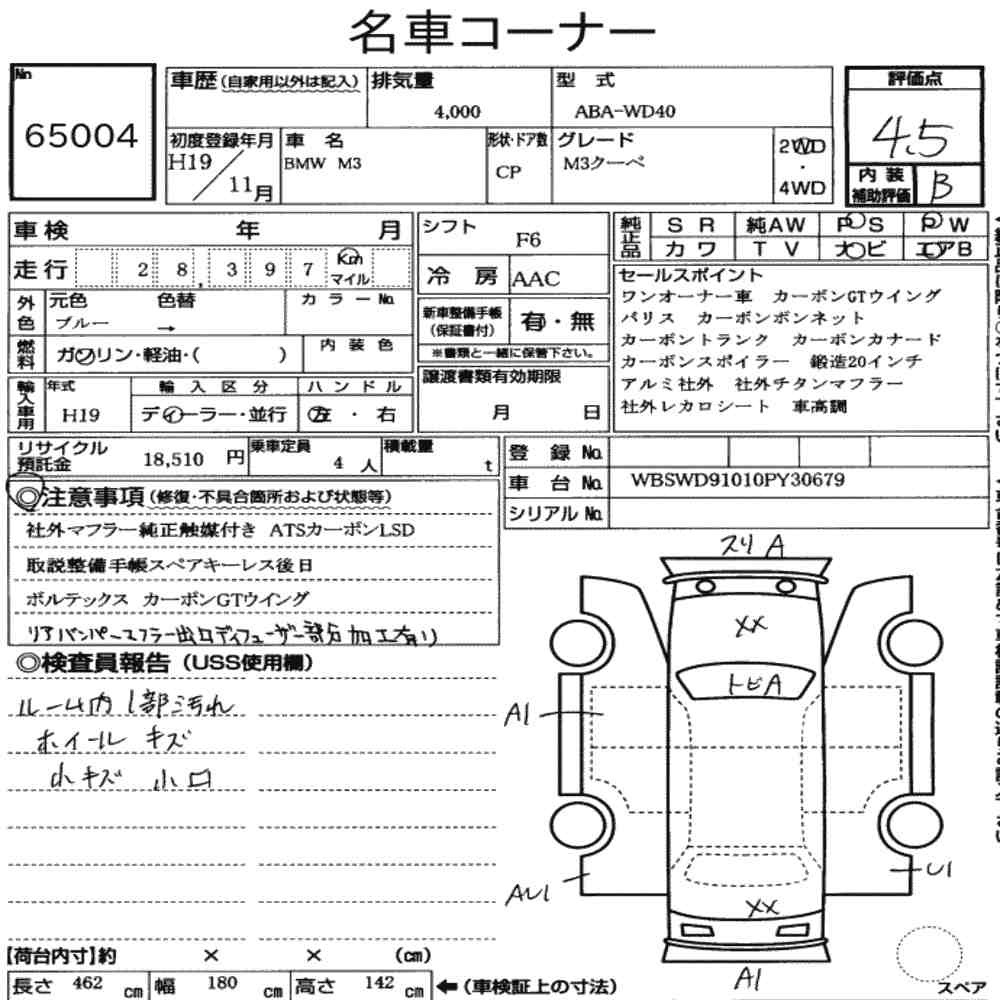 名車コーナー
No
65004
車歴(自家用以外は記入)
排気量
4,000
型 式
ABA-WD40
評価点
4.5
内装
補助評価
B
初度登録年月
H19/11月
車 名
BMW M3
形状・ドア数
CP
グレード
M3クーペ
2WD
・
4WD
車検 年 月
走行 28,397 Km マイル
外色
元色 色替
ブルー →
カラーNo.
燃料
ガソリン・軽油・( )
内装色
輸入車用
年式
H19
輸入区分
ディーラー・並行
ハンドル
左・右
シフト
F6
冷 房 AAC
新車整備手帳
(保証書付)
有・無
※書類と一緒に保管下さい。
譲渡書類有効期限
月 日
純正品
SR 純AW PS PW
カワ TV ナビ エアB
セールスポイント
ワンオーナー車 カーボンGTウイング
バリス カーボンボンネット
カーボントランク カーボンカナード
カーボンスポイラー 鍛造20インチ
アルミ社外 社外チタンマフラー
社外レカロシート 車高調
リサイクル
預託金
18,510 円
乗車定員
4 人
積載量
t
登 録 No.
車 台 No. WBSWD91010PY30679
シリアル No.
◎注意事項(修復・不具合箇所および状態等)
社外マフラー純正触媒付き ATSカーボンLSD
取説整備手帳スペアキーレス後日
ボルテックス カーボンGTウイング
リアバンパーマフラー出口ディフューザー部分加工有り
◎検査員報告(USS使用欄)
ルーム内1部汚れ
ホイール キズ
小キズ 小凹
スリ A
XX
トビA
A1
AU1
U1
XX
A1
【荷台内寸】約 × × (cm)
長さ 462 cm 幅 180 cm 高さ 142 cm ←(車検証上の寸法)
スペア